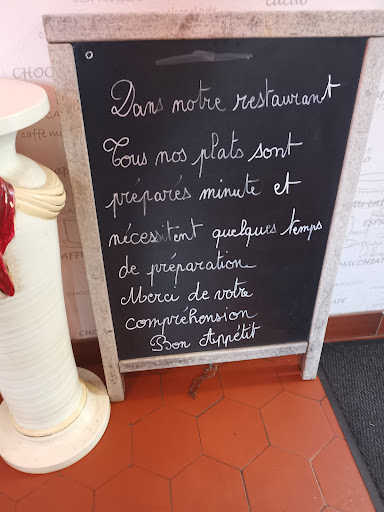 Dans notre restaurant
Tous nos plats sont
préparés minute et
nécessitent quelques temps
de préparation
Merci de votre
compréhension
Bon Appétit